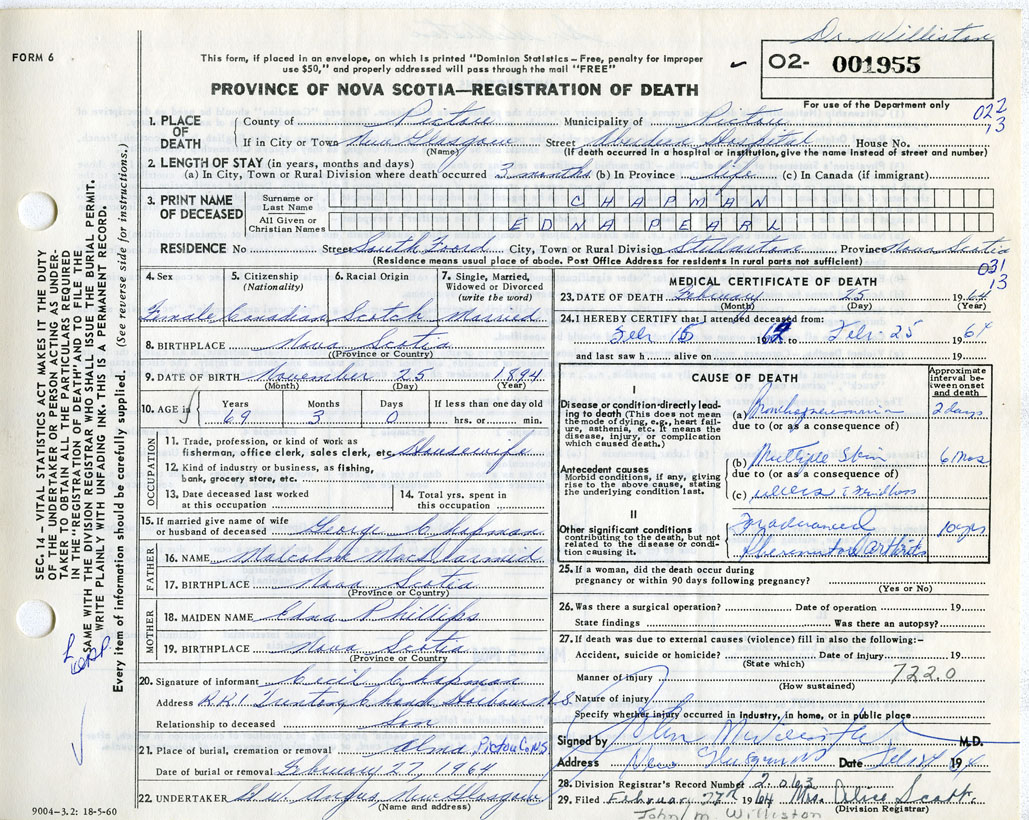 Dr. Williston
FORM 6
This form, if placed in an envelope, on which is printed "Dominion Statistics—Free, penalty for improper
use $50," and properly addressed will pass through the mail "FREE"
O2- 001955
PROVINCE OF NOVA SCOTIA—REGISTRATION OF DEATH
For use of the Department only
022
13
1. PLACE OF DEATH
County of Pictou Municipality of Pictou
If in City or Town New Glasgow Street Aberdeen Hospital House No.
(Name) (If death occurred in a hospital or institution, give the name instead of street and number)
2. LENGTH OF STAY (in years, months and days)
(a) In City, Town or Rural Division where death occurred 3 months (b) In Province Life (c) In Canada (if immigrant)
3. PRINT NAME OF DECEASED
Surname or Last Name CHAPMAN
All Given or Christian Names EDNA PEARL
RESIDENCE No Street South Foord City, Town or Rural Division Stellarton Province Nova Scotia
(Residence means usual place of abode. Post Office Address for residents in rural parts not sufficient)
031
13
4. Sex 5. Citizenship (Nationality) 6. Racial Origin 7. Single, Married, Widowed or Divorced (write the word)
Female Canadian Scotch Married
8. BIRTHPLACE Nova Scotia
(Province or Country)
9. DATE OF BIRTH November 25 1894
(Month) (Day) (Year)
10. AGE in Years Months Days If less than one day old
69 3 0 hrs. or min.
OCCUPATION
11. Trade, profession, or kind of work as
fisherman, office clerk, sales clerk, etc. Housewife
12. Kind of industry or business, as fishing,
bank, grocery store, etc.
13. Date deceased last worked at this occupation
14. Total yrs. spent in this occupation
15. If married give name of wife
or husband of deceased George Chapman
FATHER
16. NAME Malcolm MacDiarmid
17. BIRTHPLACE Nova Scotia
(Province or Country)
MOTHER
18. MAIDEN NAME Edna Phillips
19. BIRTHPLACE Nova Scotia
(Province or Country)
20. Signature of informant Cecil Chapman
Address R.R.1 Head Harbour N.S.
Relationship to deceased Son
21. Place of burial, cremation or removal Alma Pictou Co NS
Date of burial or removal February 27, 1964
22. UNDERTAKER Angus New Glasgow
(Name and address)
MEDICAL CERTIFICATE OF DEATH
23. DATE OF DEATH February 25 1964
(Month) (Day) (Year)
24. I HEREBY CERTIFY that I attended deceased from:
Feb 15 19 to Feb. 25 1964
and last saw h alive on 19
CAUSE OF DEATH
Approximate interval between onset and death
I
Disease or condition directly leading to death (This does not mean the mode of dying, e.g., heart failure, asthenia, etc. It means the disease, injury, or complication which caused death.)
(a) Bronchopneumonia 2 days
due to (or as a consequence of)
Antecedent causes
Morbid conditions, if any, giving rise to the above cause, stating the underlying condition last.
(b) Multiple Skin 6 mos
due to (or as a consequence of)
(c) ulcers
II
Other significant conditions
contributing to the death, but not related to the disease or condition causing it.
Far advanced 10 yrs
Rheumatoid Arthritis
25. If a woman, did the death occur during
pregnancy or within 90 days following pregnancy?
(Yes or No)
26. Was there a surgical operation? Date of operation 19
State findings Was there an autopsy?
27. If death was due to external causes (violence) fill in also the following:–
Accident, suicide or homicide? Date of injury 19
(State which)
Manner of injury 722.0
(How sustained)
Nature of injury
Specify whether injury occurred in industry, in home, or in public place
Signed by John M. Williston M.D.
Address New Glasgow NS Date Feb 1964
28. Division Registrar's Record Number 2063
29. Filed February 27th 1964 Mrs. Alice Scott
(Division Registrar)
John M. Williston
SEC. 14 – VITAL STATISTICS ACT MAKES IT THE DUTY
OF THE UNDERTAKER OR PERSON ACTING AS UNDER-
TAKER TO OBTAIN ALL THE PARTICULARS REQUIRED
IN THE "REGISTRATION OF DEATH" AND TO FILE THE
SAME WITH THE DIVISION REGISTRAR WHO SHALL ISSUE THE BURIAL PERMIT.
WRITE PLAINLY WITH UNFADING INK. THIS IS A PERMANENT RECORD.
Every item of information should be carefully supplied. (See reverse side for instructions.)
9004–3.2: 18-5-60